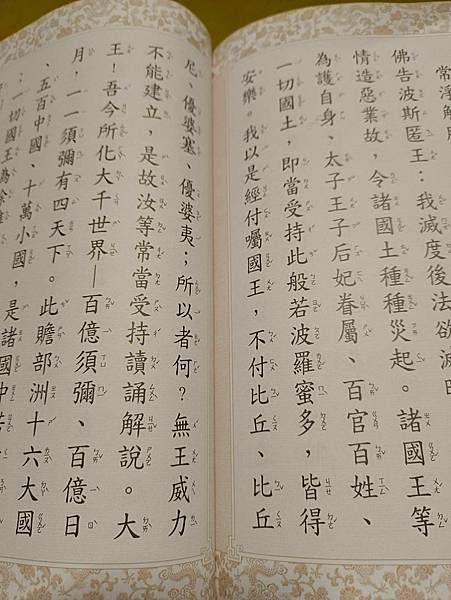 常淨解
佛告波斯匿王：我滅度後法欲滅
情造惡業故，令諸國土種種災起。諸國王等
為護自身、太子王子后妃眷屬、百官百姓、
一切國土，即當受持此般若波羅蜜多，皆得
安樂。我以是經付囑國王，不付比丘、比丘
尼、優婆塞、優婆夷；所以者何？無王威力
不能建立，是故汝等常當受持讀誦解說。大
王！吾今所化大千世界—百億須彌、百億日
月，一一須彌有四天下。此贍部洲十六大國
、五百中國、十萬小國，是諸國中若
；一切國王為除